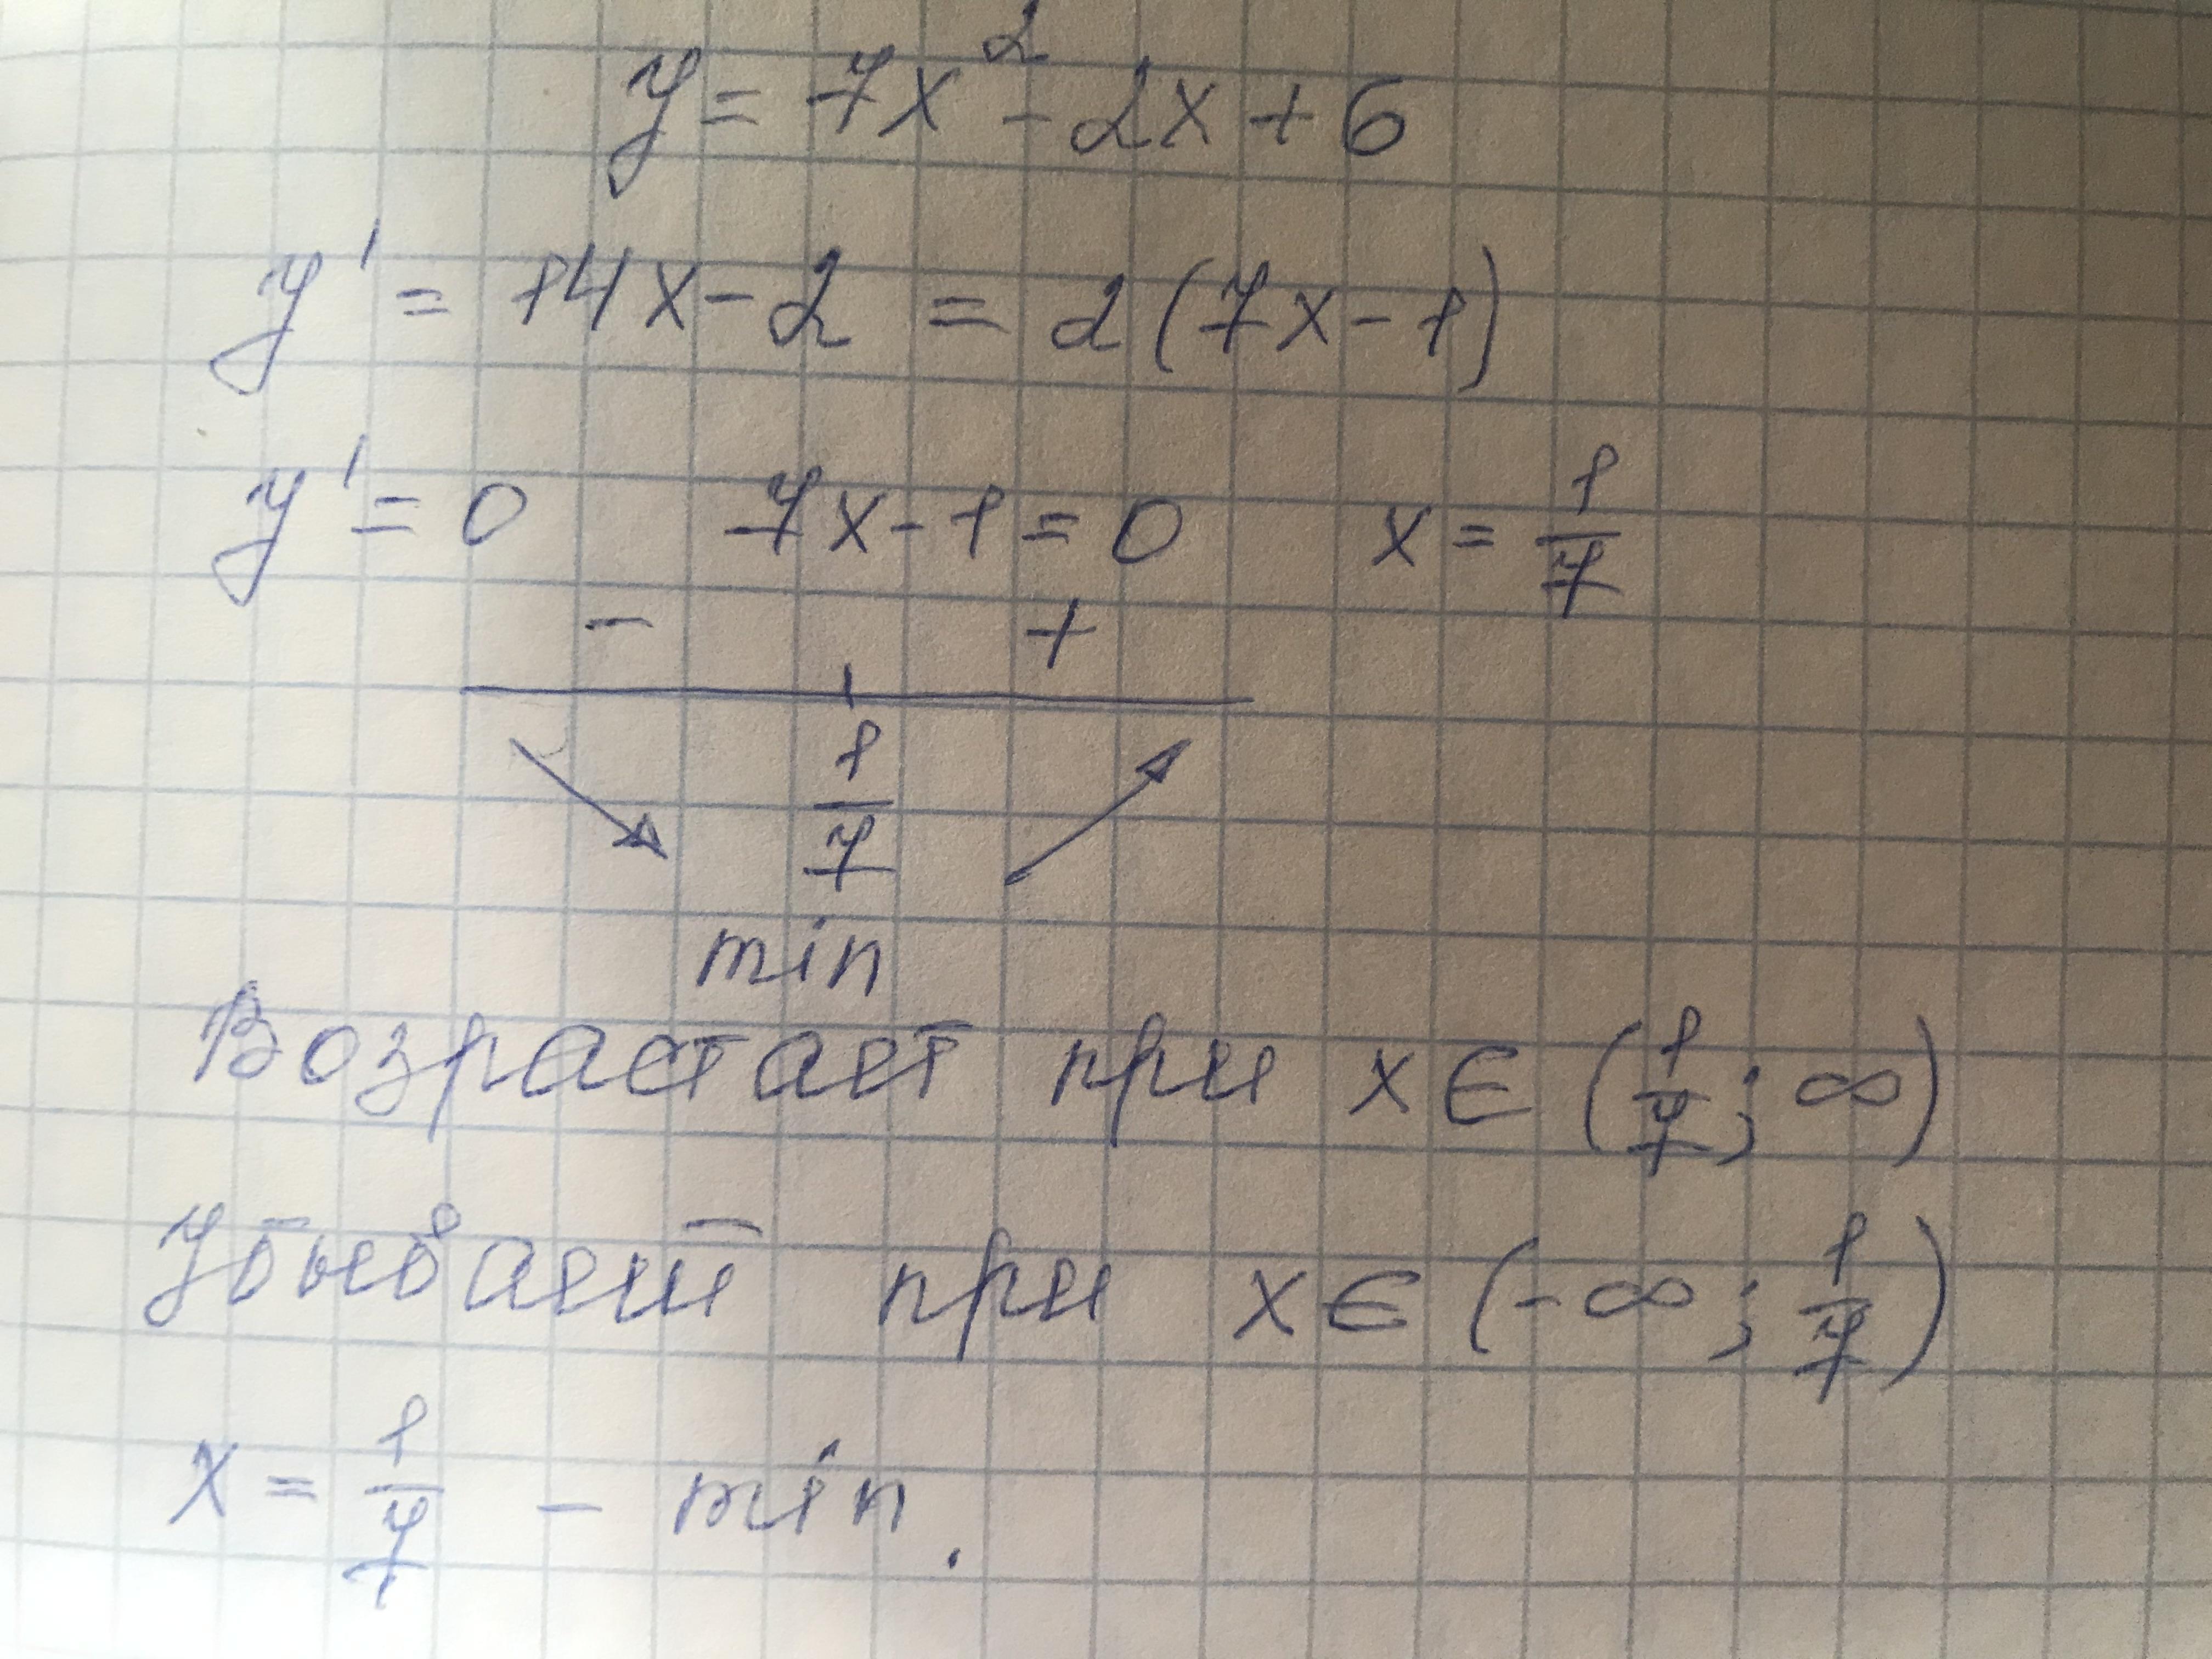 y = 7x² - 2x + 6
y' = 14x - 2 = 2(7x - 1)
y' = 0 7x - 1 = 0 x = 1/7
- +
1/7
min
Возрастает при x ∈ (1/7; ∞)
Убывает при x ∈ (-∞; 1/7)
x = 1/7 - min.